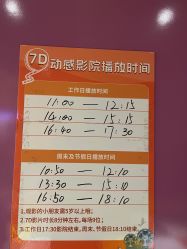 7D动感影院播放时间
工作日播放时间
11:00 — 12:15
14:00 — 15:15
16:40 — 17:30
周末及节假日播放时间
10:50 — 12:10
13:30 — 15:10
16:50 — 18:10
1.观影的小朋友需3岁以上哦;
2.7D影片时长8分钟左右,每场9位;
3.工作日17:30影院结束,周末、节假日18:10结束